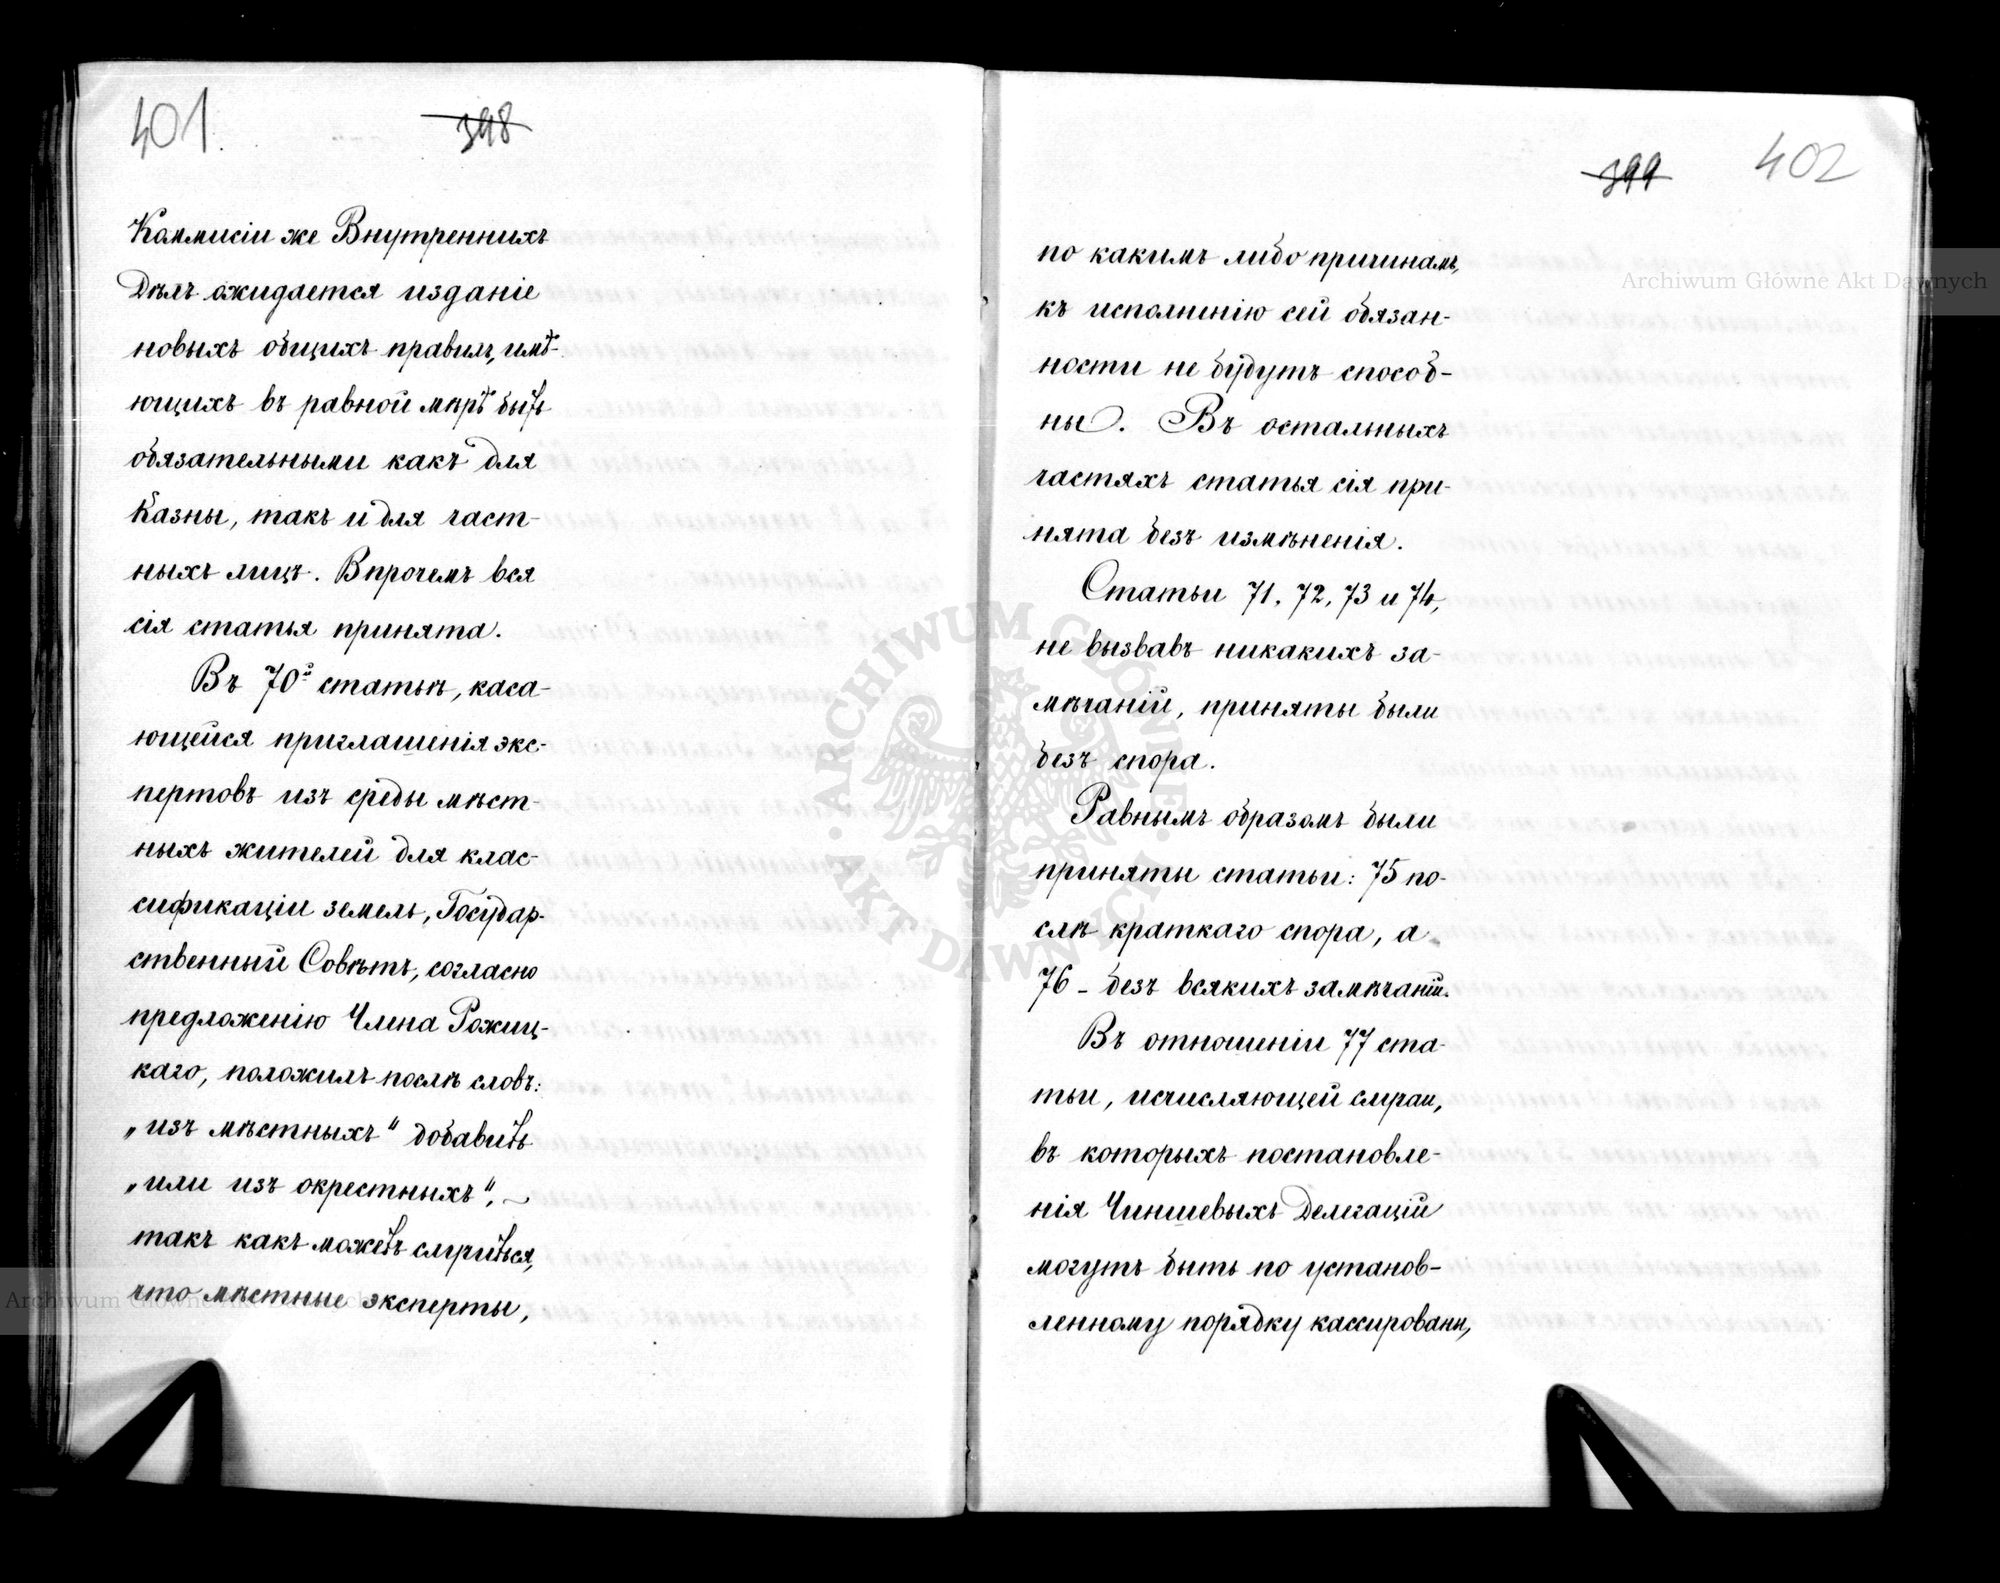 401
398
Коммисіи же Внутреннихъ
Дѣлъ ожидается изданіе
новыхъ общихъ правилъ, имѣ-
ющихъ въ равной мѣрѣ быть
обязательными какъ для
Казны, такъ и для част-
ныхъ лицъ. Впрочемъ вся
сія статья принята.
Въ 70й статьѣ, каса-
ющейся приглашенія экс-
пертовъ изъ среды мѣст-
ныхъ жителей для клас-
сификаціи земель, Государ-
ственный Совѣтъ, согласно
предложенію Члена Рожиц-
каго, положилъ послѣ словъ:
„изъ мѣстныхъ" добавить
„или изъ окрестныхъ",
такъ какъ можетъ случиться,
что мѣстные эксперты,
399
402
по какимъ либо причинамъ,
къ исполненію сей обязан-
ности не будутъ способ-
ны. Въ остальныхъ
частяхъ статья сія при-
нята безъ измѣненія.
Статьи 71, 72, 73 и 74,
не вызвавъ никакихъ за-
мѣчаній, приняты были
безъ спора.
Равнымъ образомъ были
приняты статьи: 75 по-
слѣ краткаго спора, а
76 - безъ всякихъ замѣчаній.
Въ отношеніи 77 ста-
тьи, исчисляющей случаи,
въ которыхъ постановле-
нія Чиншевыхъ Делегацій
могутъ быть по установ-
ленному порядку кассированы,
Archiwum Główne Akt Dawnych
Archiwum Główne Akt Dawnych
ARCHIWUM GŁÓWNE · AKT DAWNYCH ·